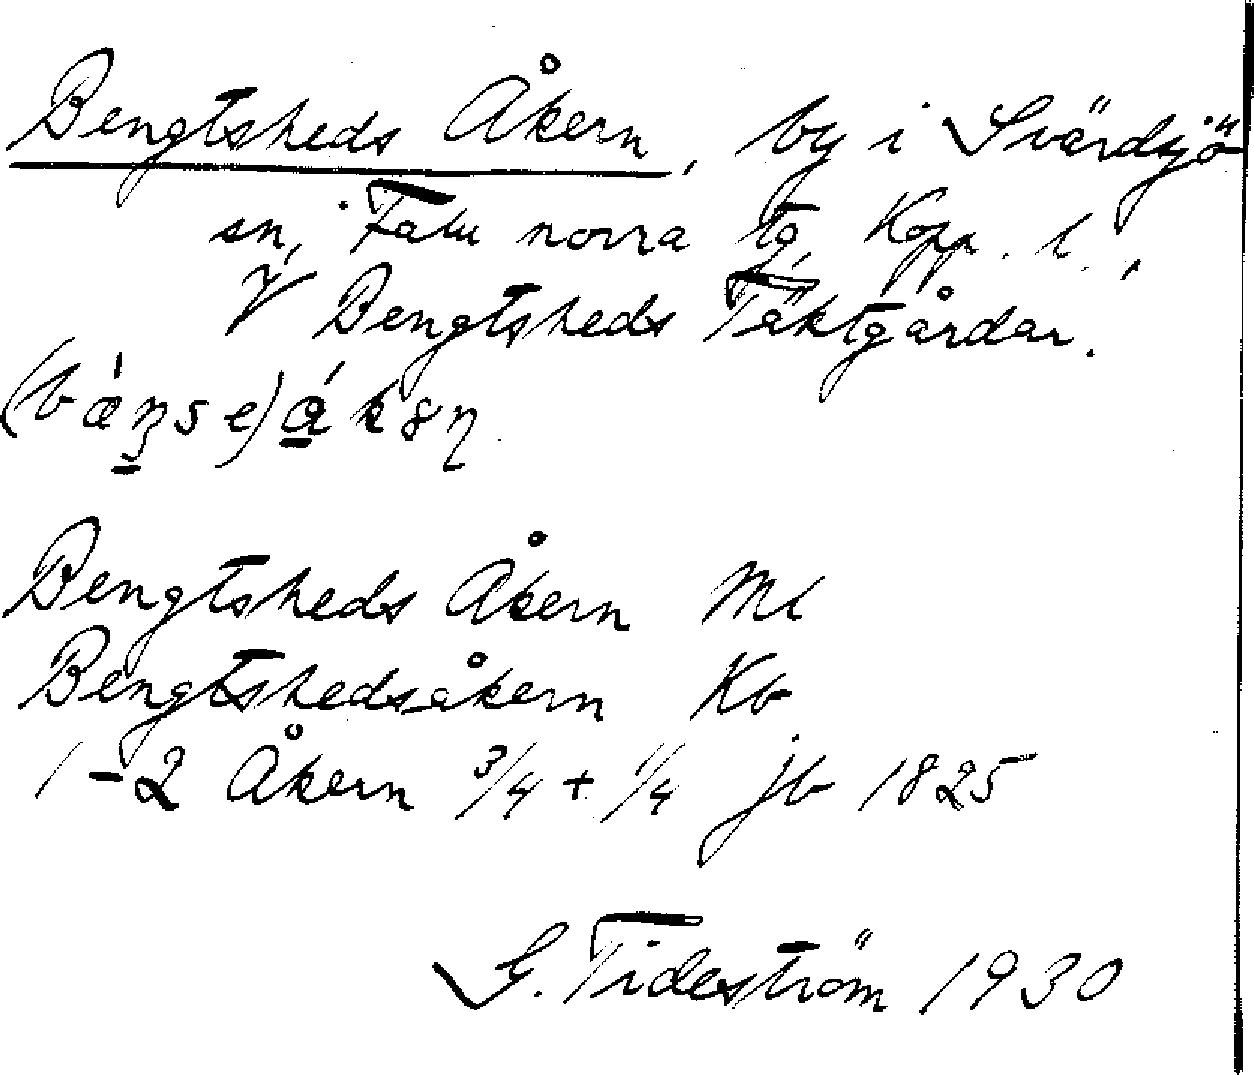 Bengtsheds Åkern, by i Svärdsjö
sn, Falu norra tg, Kopp. l.,
V Bengtsheds Täktgårdar.
Bengtsheds Åkern Ml
Bengtshedsåkern Kb
1-2 Åkern 3/4 + 1/4 jb 1825
G. Tideström 1930